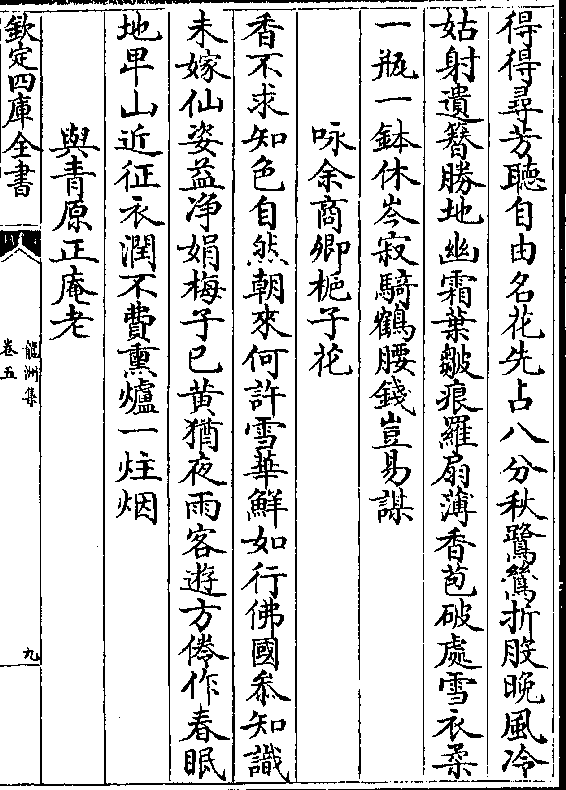 得得尋芳聽自由名花先占八分秋鷺鶿折股晚風冷
姑射遺簪勝地幽霜葉皴痕羅扇薄香苞破處雪衣柔
一瓶一鉢休岑寂騎鶴腰錢豈易謀
咏余商卿梔子花
香不求知色自然朝來何許雪華鮮如行佛國叅知識
未嫁仙姿益净娟梅子已黄猶夜雨客遊方倦作春眠
地卑山近征衣潤不費熏爐一炷烟
與青原正庵老
欽定四庫全書
龍洲集
卷五
九